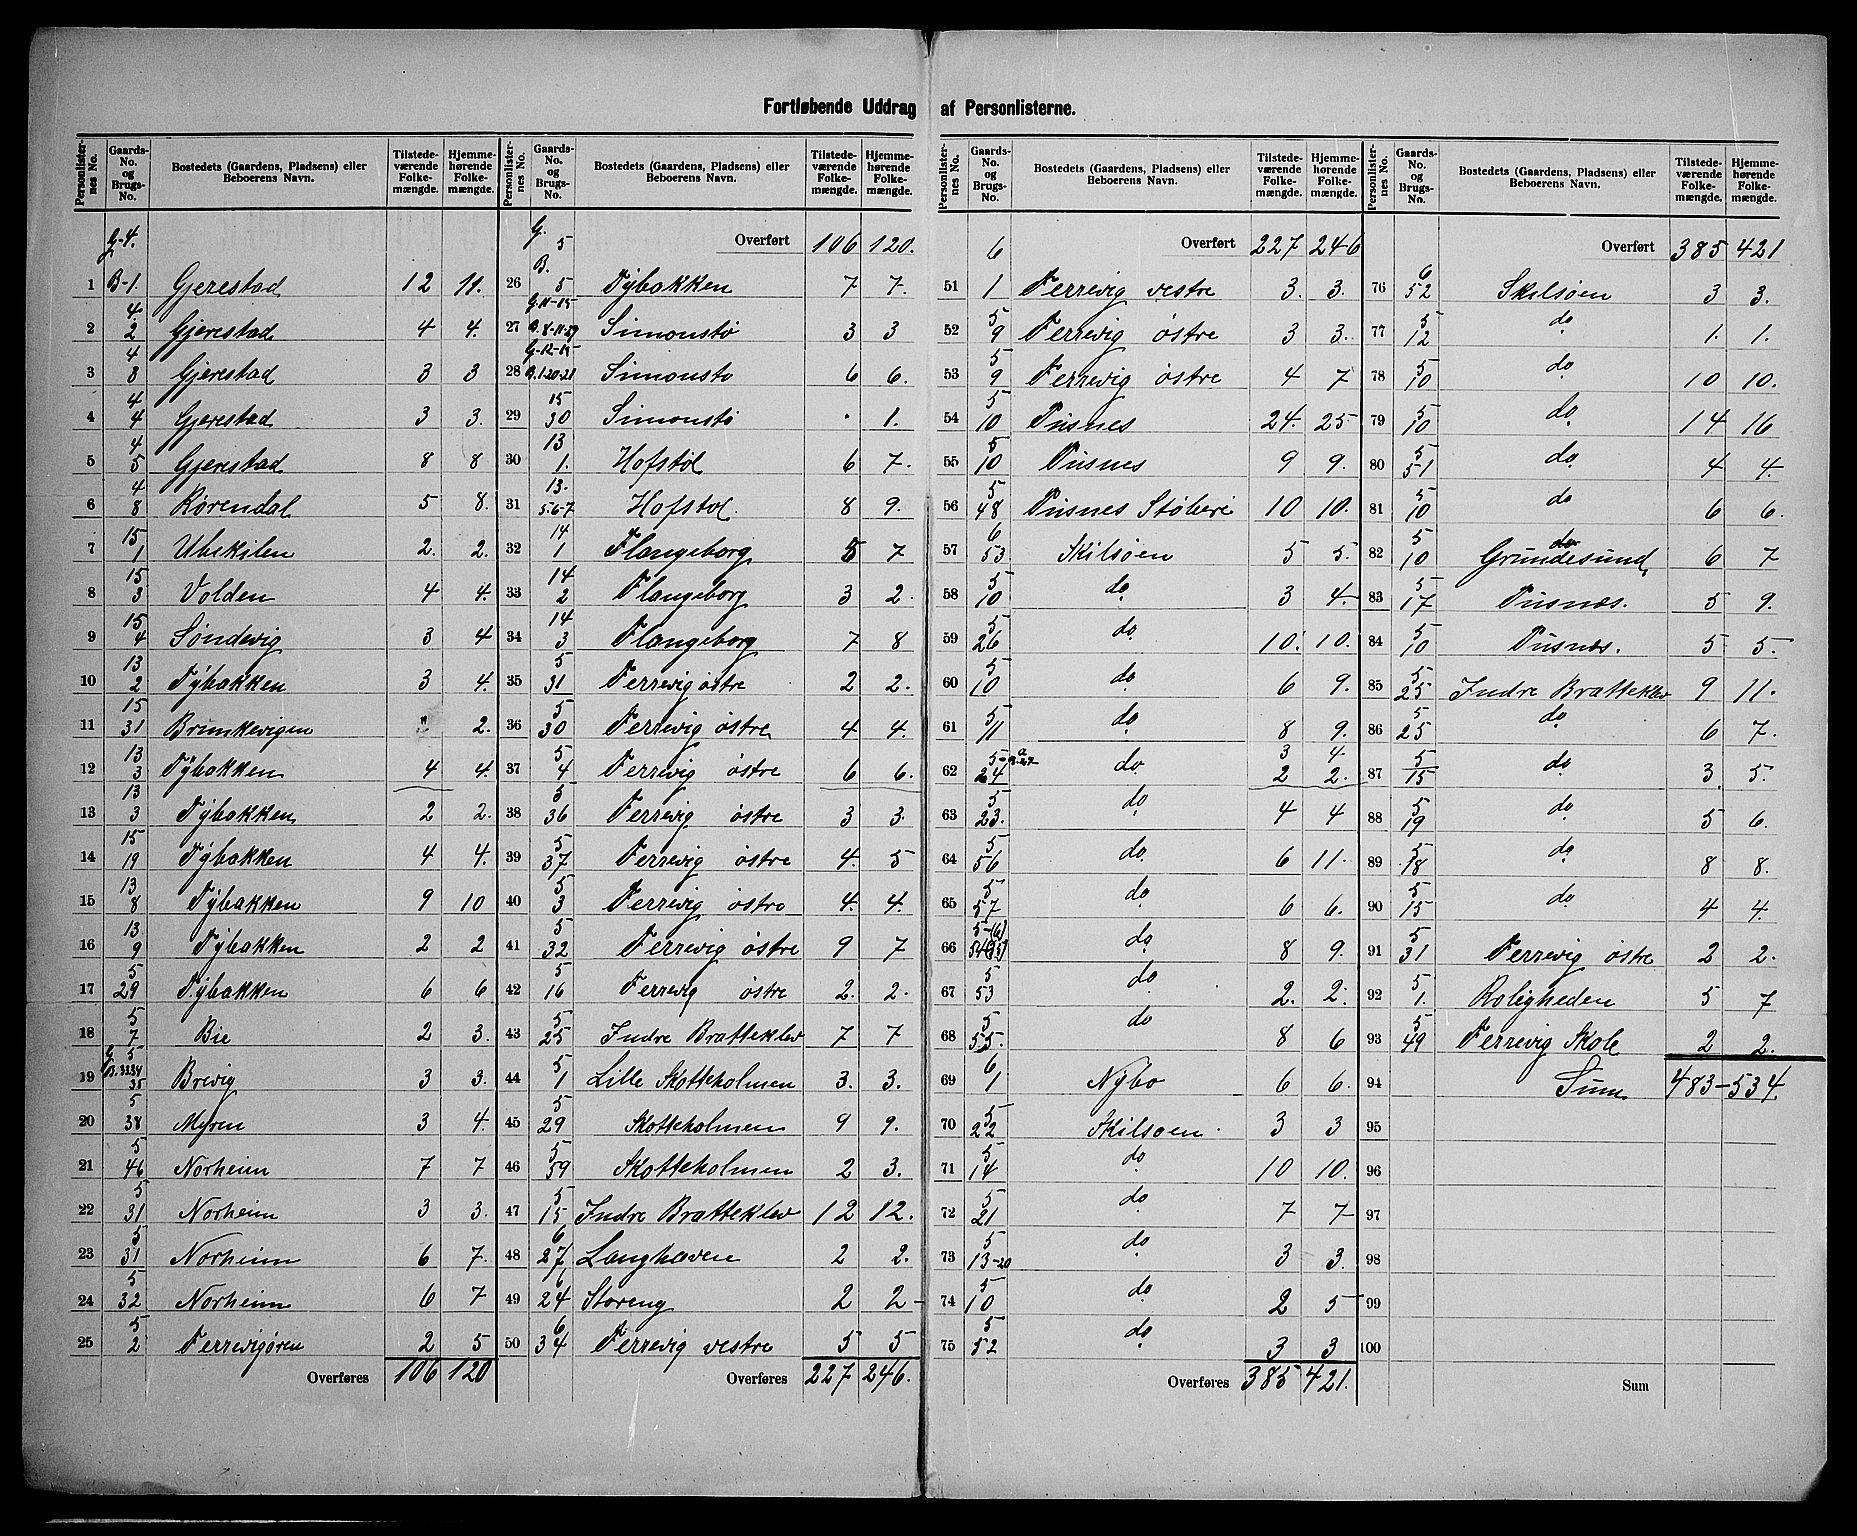 Fortløbende Uddrag af Personlisterne.
Personlister-nes No. | Gaards-No. og Brugs-No. | Bostedets (Gaardens, Pladsens) eller Beboerens Navn. | Tilstede-værende Folke-mængde. | Hjemme-hørende Folke-mængde.
G-4.
1 B-1. Gjerestad 12 11.
2 4. 2 Gjerestad 4 4.
3 4 8 Gjerestad 3 3
4 4 4 Gjerestad 3 3.
5 4 5 Gjerestad 8 8
6 4 8 Rørendal 5 8.
7 15 1 Ubekilen 2. 2.
8 15 3 Volden 4 4.
9 15 4 Søndevig 3 4
10 13 2 Tybakken 3 4.
11 15 31 Brunkevigen " 2.
12 13 3 Tybakken 4 4.
13 13 3 Tybakken 2 2.
14 15 19 Tybakken 4 4.
15 13 8 Tybakken 9 10
16 13 9 Tybakken 2 2
17 5 29 Tybakken 6 6
18 5 7 Bie 2 3.
19 G. 5 B. 33.34 35 Brevig 3 3.
20 5 38 Myren 3 4.
21 5 46 Norheim 7 7
22 5 31 Norheim 3 3.
23 5 31 Norheim 6 7.
24 5 32 Norheim 6 7
25 5 2 Ferrevigøren 2 5
Overføres 106 120
Personlister-nes No. | Gaards-No. og Brugs-No. | Bostedets (Gaardens, Pladsens) eller Beboerens Navn. | Tilstede-værende Folke-mængde. | Hjemme-hørende Folke-mængde.
G. 5 Overført 106 120.
26 B. 5 Tybakken 7 7.
27 G-11-15 B.8-11-29 Simonstø 3 3
28 G-12-15 B.1-20-21 Simonstø 6 6.
29 15 30 Simonstø . 1.
30 13 1. Hofstøl 6 7.
31 13. 5-6-7 Hofstøl. 8 9.
32 14 1 Flangeborg 5 7
33 14 2 Flangeborg 3 2.
34 14 3 Flangeborg 7 8
35 5 31 Ferrevig østre 2 2.
36 5 30 Ferrevig østre 4 4.
37 5 4 Ferrevig østre 6 6.
38 5 36 Ferrevig østre 3 3.
39 5 37 Ferrevig østre 4. 5
40 5 3 Ferrevig østre 4. 4.
41 5 32 Ferrevig østre 9 7
42 5 16 Ferrevig østre 2. 2.
43 5 25 Indre Bratteklev 7 7
44 5 1 Lille Skotteholmen 3. 3.
45 5 29 Skotteholmen 9 9.
46 5 59 Skotteholmen 2 3.
47 5 15 Indre Bratteklev 12 12.
48 6 27 Langhaven 2 2.
49 6 24 Storeng 2 2
50 6 34 Ferrevig vestre 5 5
Overføres 227 246.
Personlister-nes No. | Gaards-No. og Brugs-No. | Bostedets (Gaardens, Pladsens) eller Beboerens Navn. | Tilstede-værende Folke-mængde. | Hjemme-hørende Folke-mængde.
6 Overført 227 246
51 1 Ferrevig vestre 3. 3.
52 5 9 Ferrevig østre 3 3.
53 5 9 Ferrevig østre 4 7
54 5 10 Pusnes 24. 25
55 5 10 Pusnes 9 9.
56 5 48 Pusnes Støberi 10 10.
57 6 53 Skilsøen 5 5.
58 5 10 do 3 4.
59 5 26 do 10. 10.
60 5 10 do 6 9.
61 5 11 do 8 9.
62 5 24 do 3 4 2 2.
63 5 23. do 4 4
64 5 56 do 6 11.
65 5 57 do 6 6.
66 5-(6) do 8 9.
67 5 53 do 2. 2.
68 5 55. do 8 6
69 6 1 Nybo 6 6.
70 5 22 Skilsøen. 3 3
71 5 14 do 10 10.
72 5 21 do 7 7
73 5 13-20 do 3 3.
74 5 10 do 2 5
75 5 52 do 3 3
Overføres 385 421.
Personlister-nes No. | Gaards-No. og Brugs-No. | Bostedets (Gaardens, Pladsens) eller Beboerens Navn. | Tilstede-værende Folke-mængde. | Hjemme-hørende Folke-mængde.
Overført 385 421
76 6 52 Skilsøen 3 3.
77 5 12 do 1. 1.
78 5 10 do 10 10.
79 5 10 do 14 16
80 5 51 do 4 4.
81 5 10 do 6 6.
82 5 10 Grundesund 6 7
83 5 17 Pusnæs. 5 9.
84 5 10 Pusnæs. 5 5.
85 5 25 Indre Bratteklev 9 11.
86 5 25 do 6 7.
87 5 15 do 3. 5.
88 5 19 do 5 6.
89 5 18 do 8 8.
90 5 15 do 4 4.
91 5 31 Ferrevig østre 2 2.
92 5 1. Roligheden 5 7
93 5 49 Ferrevig Skole 2 2.
94 Sum 483-534.
95
96
97
98
99
100
Sum